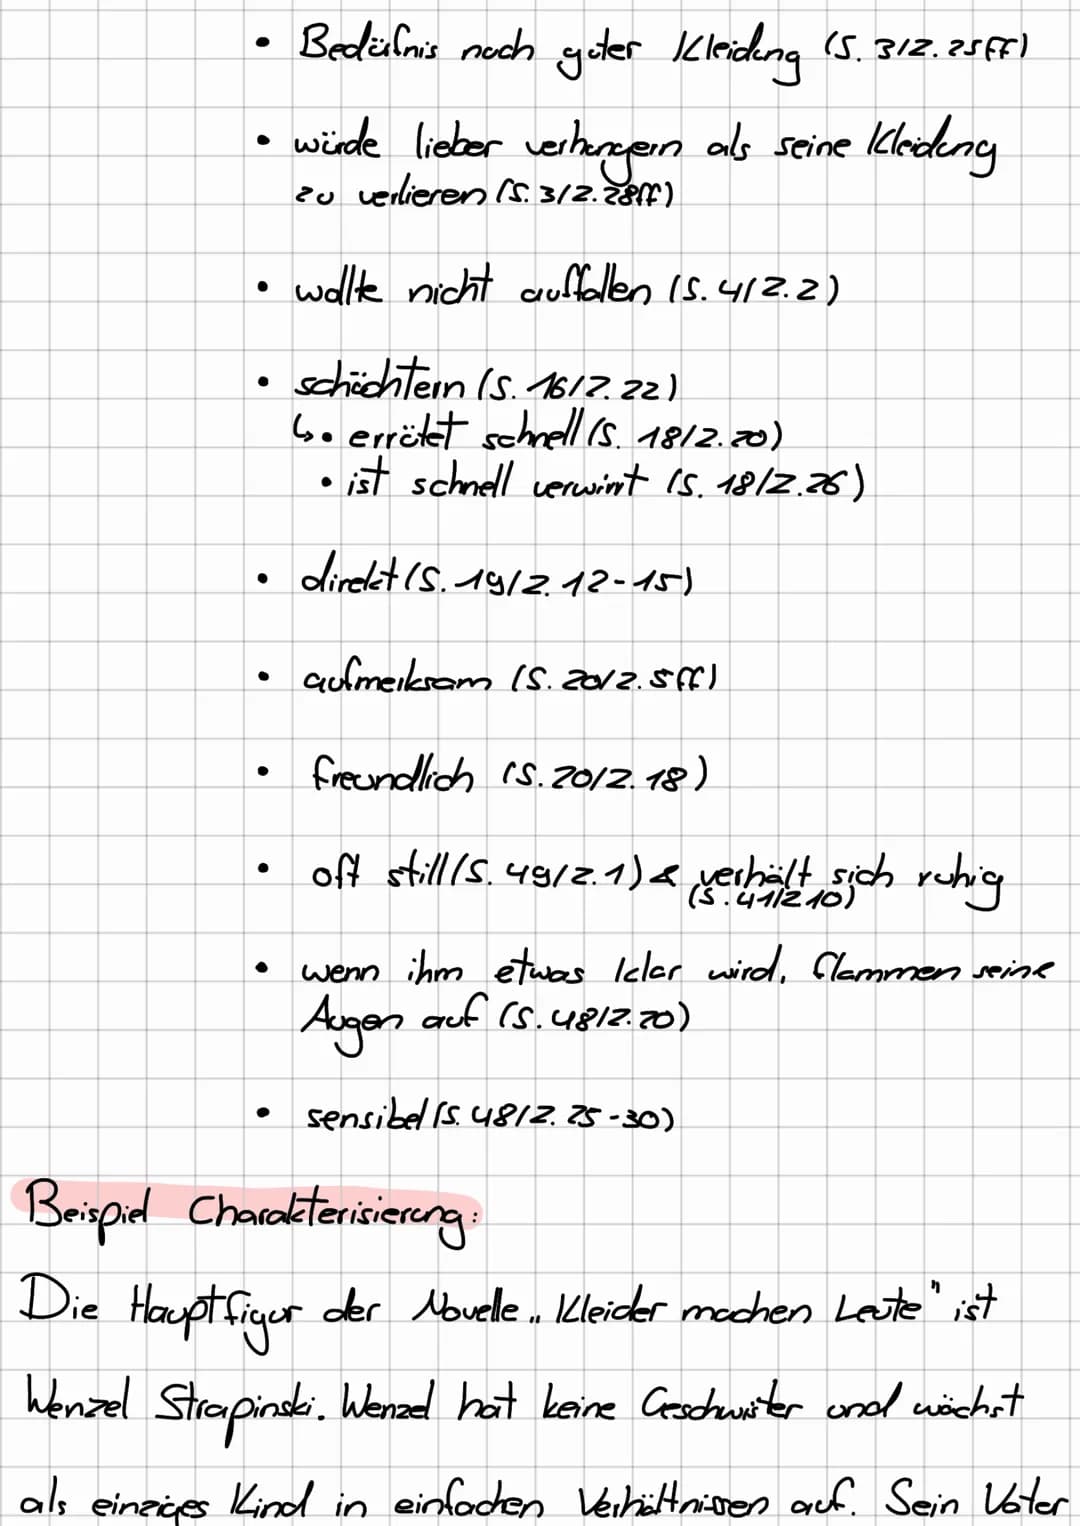 • Bedüfnis nach guter Kleidung (S. 3/Z. 25ff)
• würde lieber verhungern als seine Kleidung
zu verlieren (S. 3/Z. 28ff)
• wollte nicht auffallen (S. 4/Z. 2)
• schüchtern (S. 16/Z. 22)
↳ • errötet schnell (S. 18/Z. 20)
• ist schnell verwirrt (S. 18/Z. 26)
• direkt (S. 19/Z. 12-15)
• aufmerksam (S. 20/Z. 5ff)
• freundlich (S. 20/Z. 18)
• oft still (S. 49/Z. 1) & verhält sich ruhig
(S. 41/Z 10)
• wenn ihm etwas klar wird, flammen seine
Augen auf (S. 48/Z. 20)
• sensibel (S. 48/Z. 25-30)
Beispiel Charakterisierung:
Die Hauptfigur der Novelle „Kleider machen Leute" ist
Wenzel Strapinski. Wenzel hat keine Geschwister und wächst
als einziges Kind in einfachen Verhältnissen auf. Sein Vater